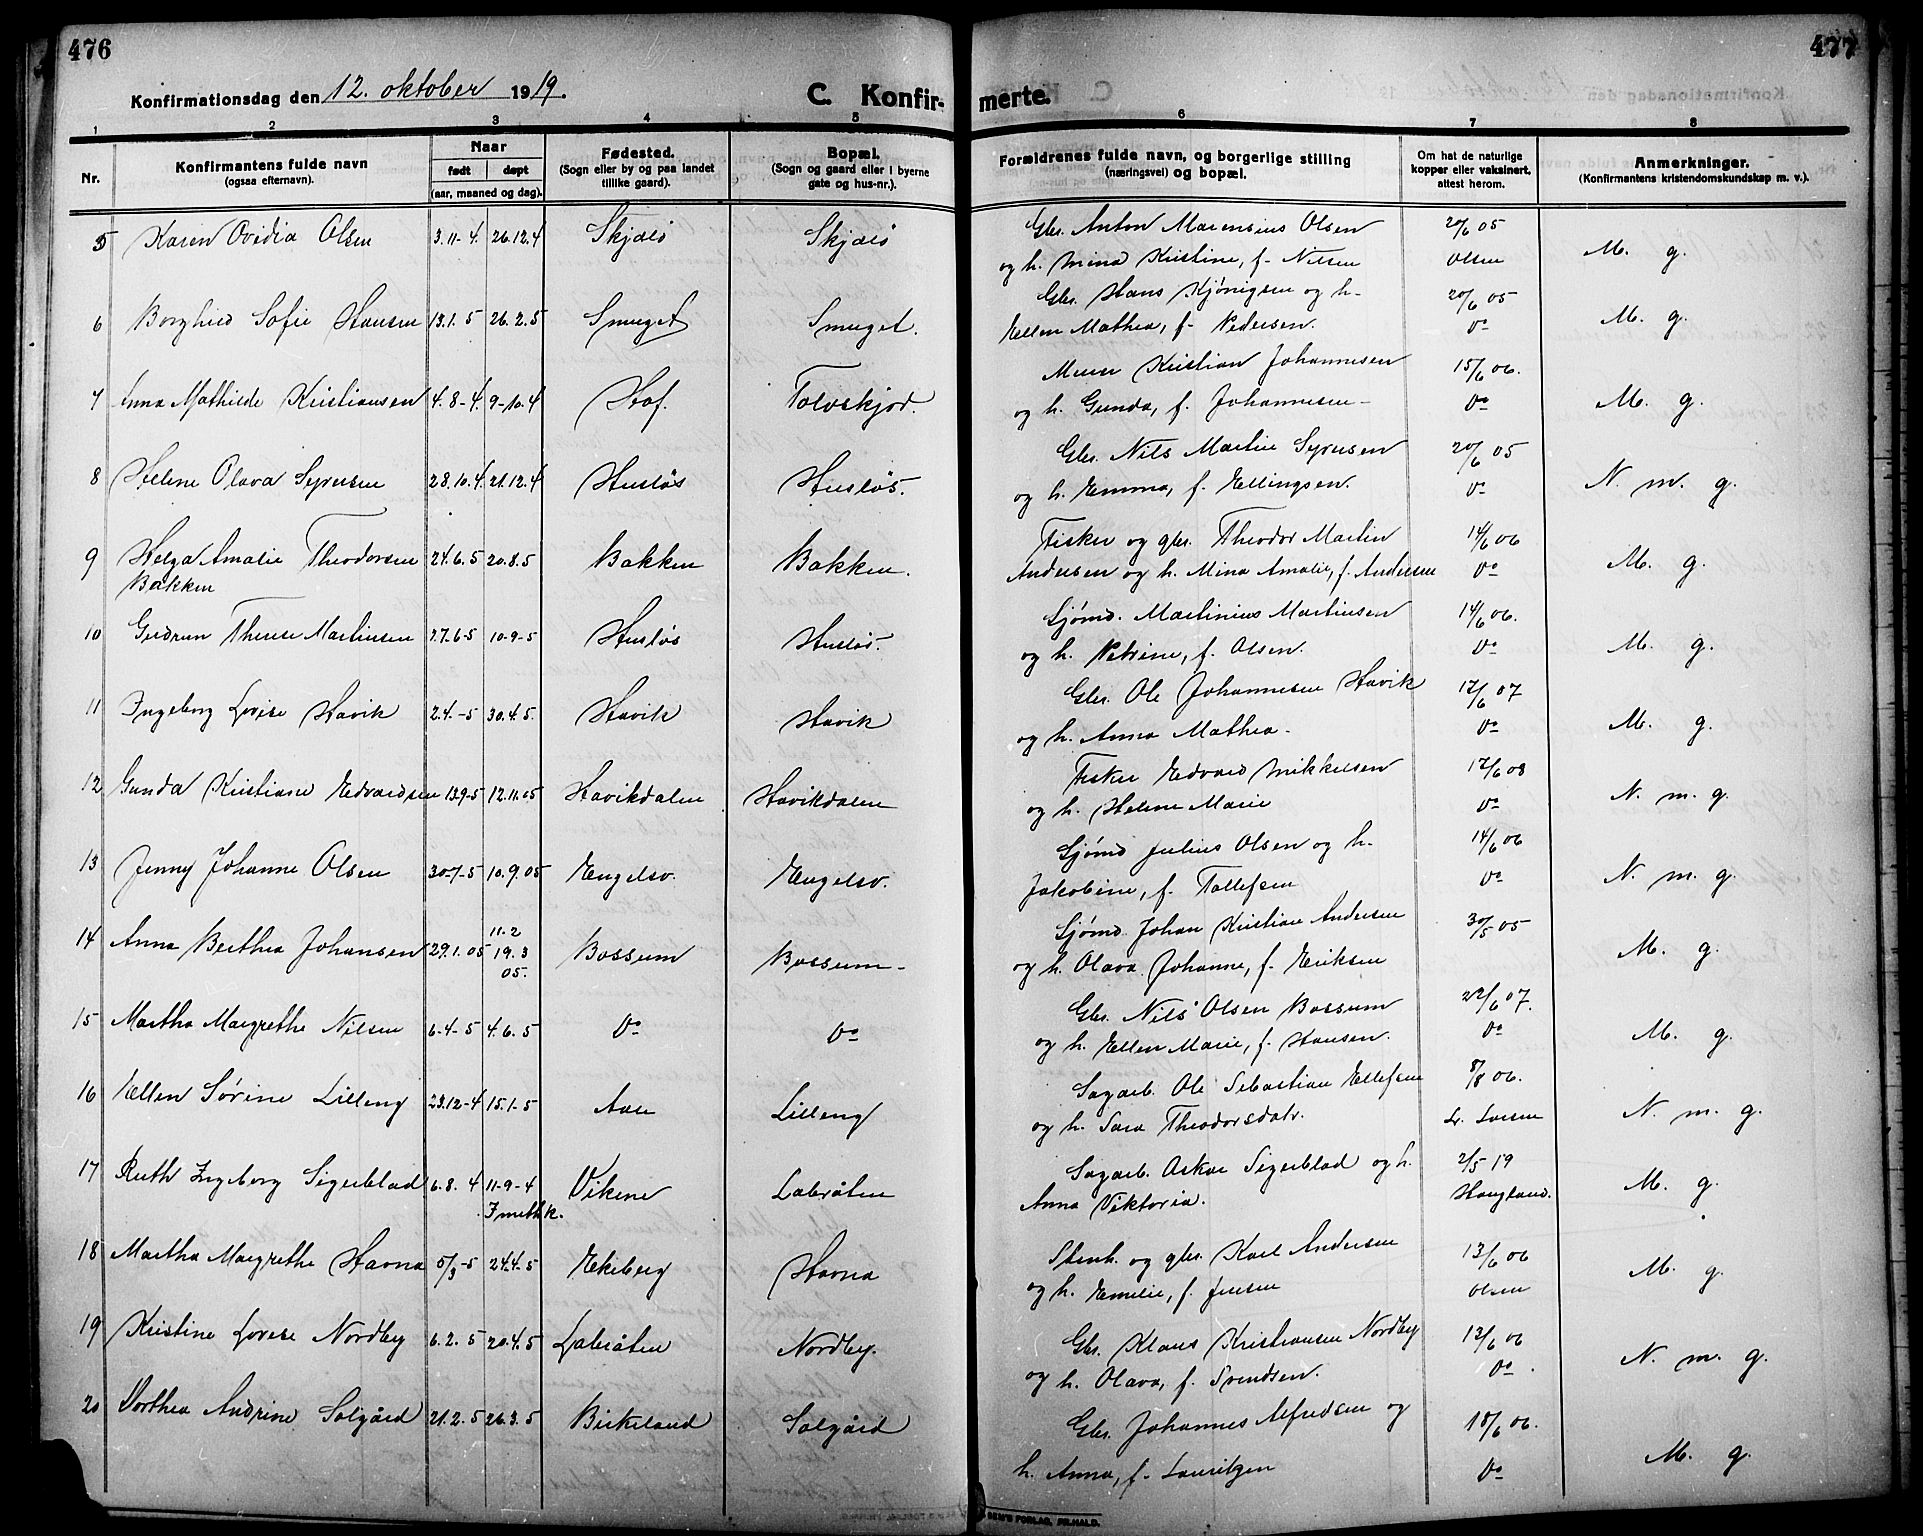 476
477
Konfirmationsdag den 12. oktober 1919.
C. Konfir- merte.
1 2 3 4 5 6 7 8
Nr.
Konfirmantens fulde navn
(ogsaa efternavn).
Naar
født døpt
(aar, maaned og dag).
Fødested.
(Sogn eller by og paa landet
tillike gaard).
Bopæl.
(Sogn og gaard eller i byerne
gate og hus-nr.).
Forældrenes fulde navn, og borgerlige stilling
(næringsvei) og bopæl.
Om hat de naturlige
kopper eller vaksinert,
attest herom.
Anmerkninger.
(Konfirmantens kristendomskundskap m. v.).
5 Karen Ovidia Olsen 3.11-4. 26.12.4 Skjælø Skjælø Gbr. Anton Marensius Olsen 20/6 05 M. g.
og h. Mina Kristine, f. Nilsen Olsen
6 Borghild Sofie Hansen 13.1.5 26.2.5 Smuget Smuget. Gbr. Hans Kjønigsen og h. 20/6 05 M. g.
Ellen Mathea, f. Pedersen. Do
7 Anna Mathilde Kristiansen 4.8-4. 9-10.4 Hof. Tolvskjor. Murer Kristian Johannesen 15/6 06. M. g.
og h. Gunda, f. Johannesen Do
8 Helene Olava Syversen 28.10.4 21.12.4 Husløs Husløs. Gbr. Nils Martin Syversen 20/6 05 N. m. g.
og h. Emma, f. Ellingsen. Do
9 Helga Amalie Theodorsen 24.6.5 20.8.5 Bakken Bakken. Fisker og gbr. Theodor Martin 14/6 06 M. g.
Bakken
Andersen og h. Mina Amalie, f. Andersen Do
10 Gudrun Therese Martinsen 27-6-5 10-9-5 Husløs Husløs. Sjømd. Martinius Martinsen 14/6 06. M. g.
og h. Petrine, f. Olsen. Do
11 Ingeborg Lovise Havik 2.4.-5 30.4.5. Havik Havik Gbr. Ole Johannesen Havik 12/6 07 M. g.
og h. Anna Mathea. Do
12 Gunda Kristiane Edvardsen 13.9-5 12.11.05 Havikdalen Havikdalen Fisker Edvard Mikkelsen 12/6 08 N. m. g.
og h. Helene Marie Do
13 Jenny Johanne Olsen 30-7-5 10.9.05 Engelsv. Engelsv. Sjømd Julius Olsen og h. 14/6 06 N. m. g.
Jakobine, f. Tollefsen Do
14 Anna Berthea Johansen 29.1.05 11.2 19.3 05. Bossum Bossum Sjømd. Johan Kristian Andersen 30/5 05 M. g.
og h. Olava Johanne, f. Eriksen
15 Martha Margrethe Nilsen 6-4-5 4.6.5 Do Do Gbr. Nils Olsen Bossum 22/6 07. M. g.
og h. Ellen Marie, f. Hansen. Do
16 Ellen Sørine Lilleng 23.12-4 15.1-5 Aale Lilleng Sagarb. Ole Sebastian Ellefsen 8/8 06. N. m. g.
og h. Sara Theodorsdatr. Lr. Larsen
17 Ruth Ingeborg Segerblad 6.8.4 11-9-4 Vikene Labråten Sagarb. Oskar Segerblad og h. 2/5 19 M. g.
Anna Viktoria. Haugland.
18 Martha Margrethe Havna 5/3-5 24.4-5 Ekeberg Havna Stenh. og gbr. Karl Andersen 13/6 06 M. g.
og h. Emilie, f. Jensen Olsen
19 Kristine Lovise Nordby 6.2.5 20.4.5 Labråten Nordby. Gbr. Klaus Kristiansen Nordby 13/6 06 N. m. g.
og h. Olava, f. Svendsen. Do
20 Dorthea Andrine Solgård 21.2.5 26.3.5 Birkeland Solgård Gbr. Johannes Alfredsen og 18/6 06. M. g.
h. Anna, f. Lauritzen Do